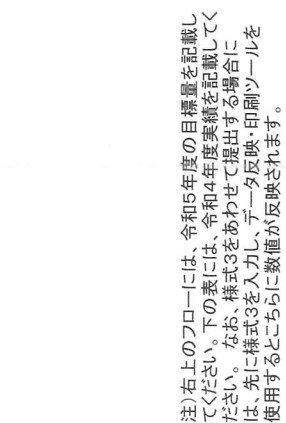 注)右上のフローには、令和5年度の目標量を記載し
てください。下の表には、令和4年度実績を記載してく
ださい。 なお、様式3をあわせて提出する場合に
は、先に様式3を入力し、データ反映・印刷ツールを
使用するとこちらに数値が反映されます。